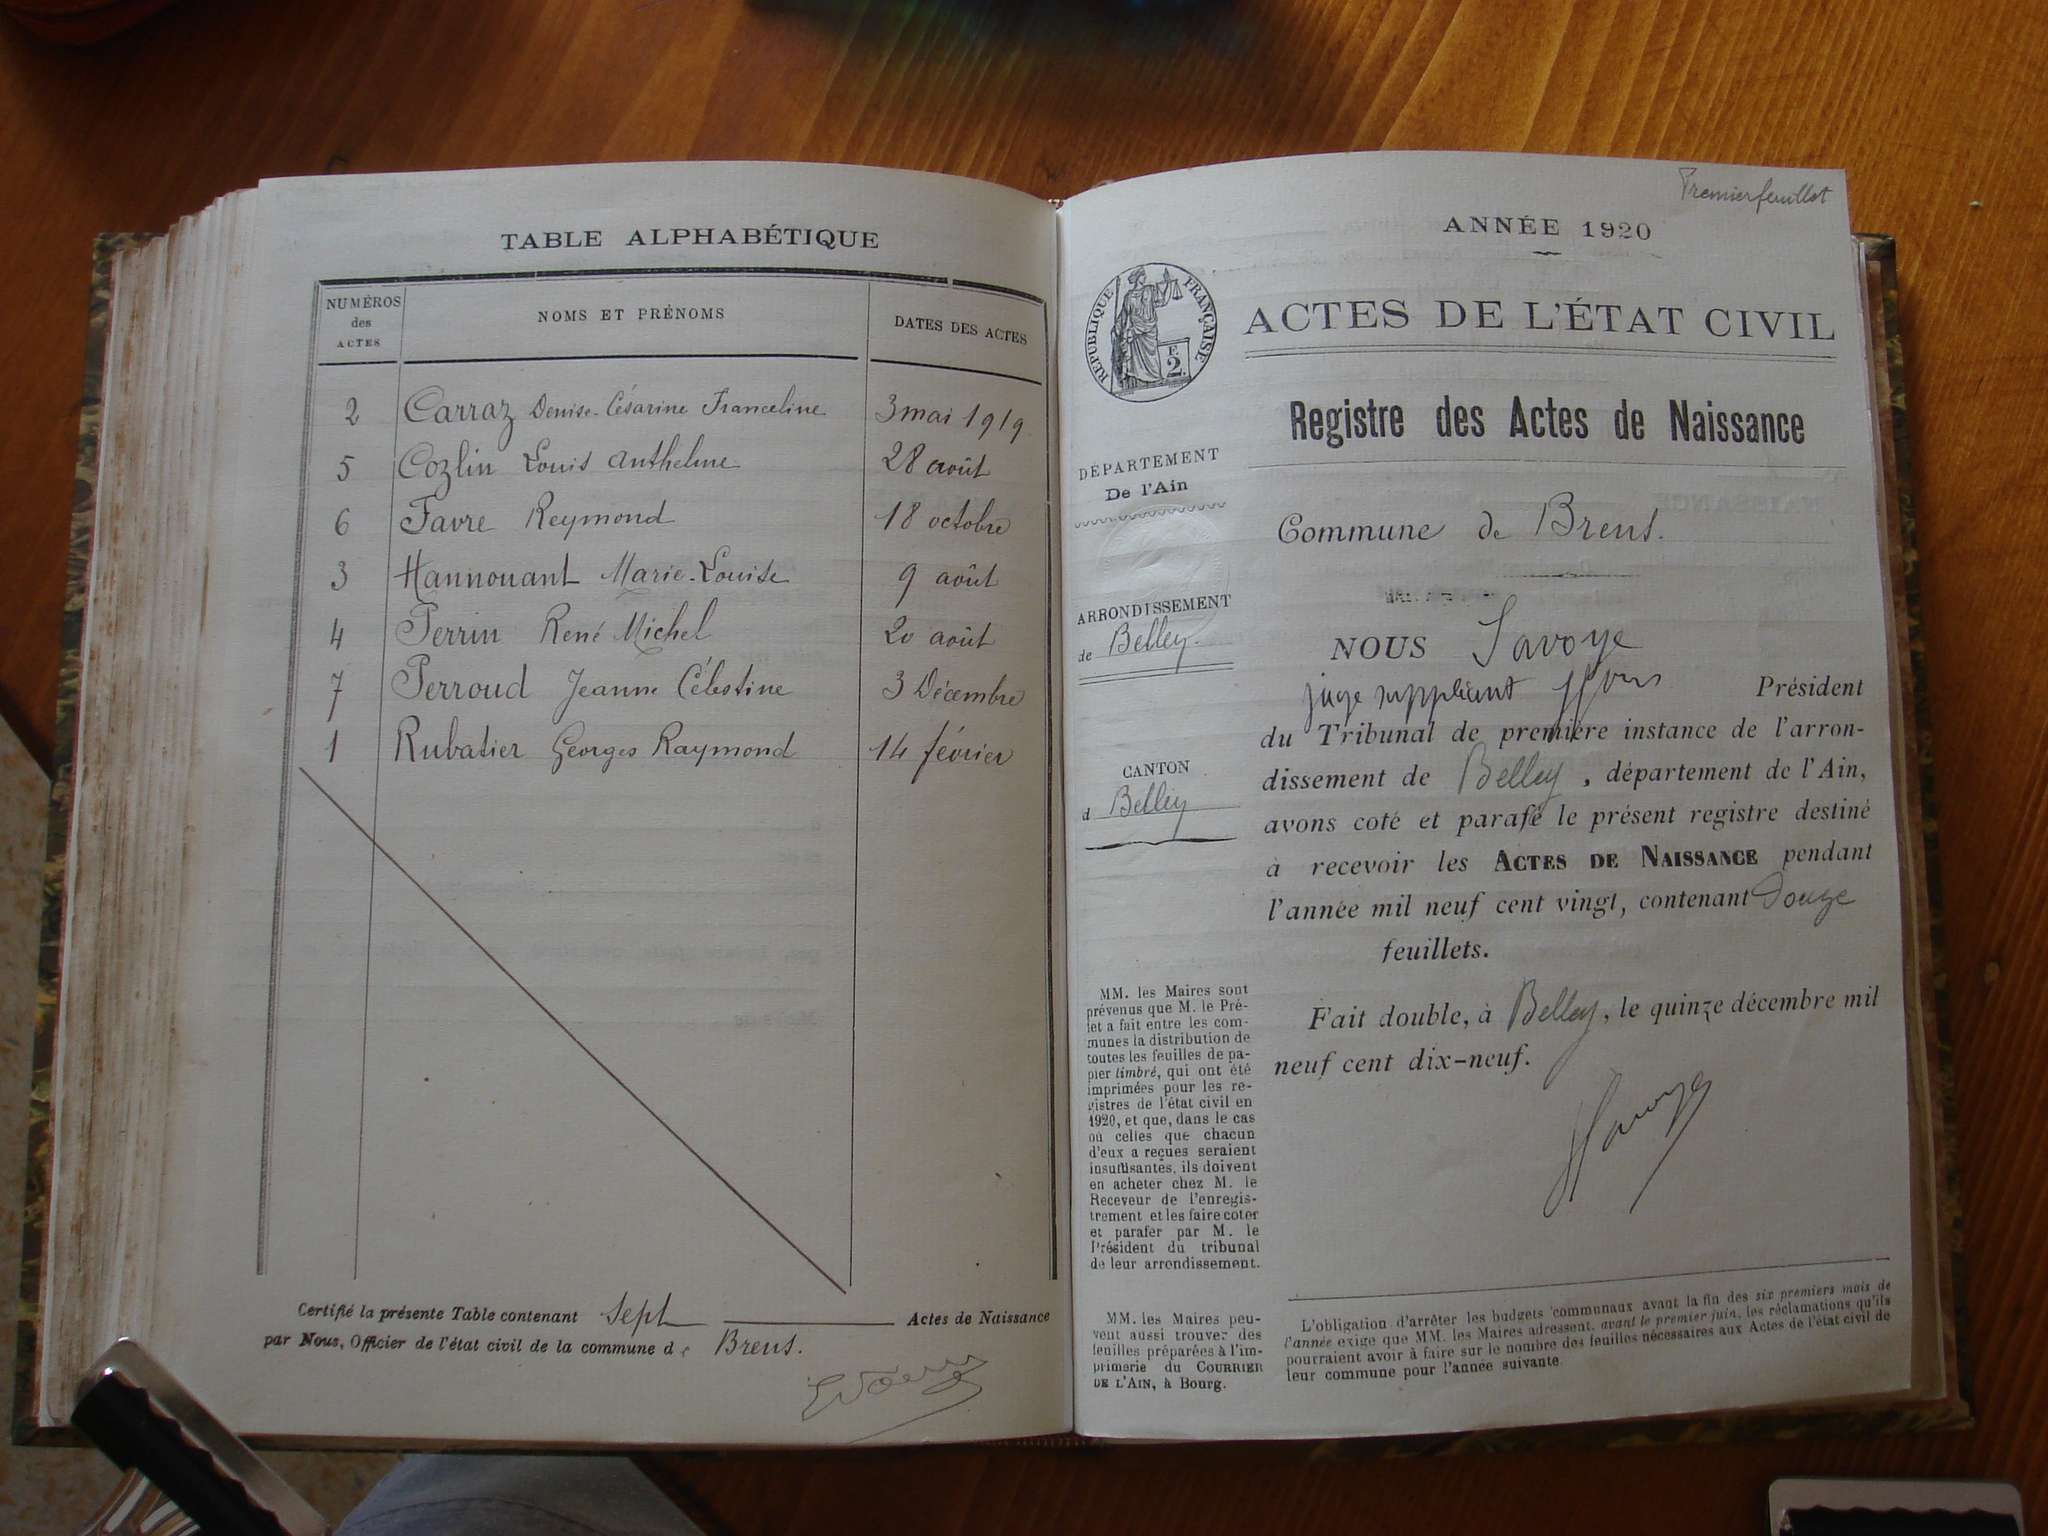 TABLE ALPHABÉTIQUE
NUMÉROS des ACTES
NOMS ET PRÉNOMS
DATES DES ACTES
2 Carraz Denise-Césarine Franceline 3 mai 1919
5 Cozlin Louis Anthelme 28 août
6 Favre Reymond 18 octobre
3 Hannouant Marie-Louise 9 août
4 Perrin René Michel 20 août
7 Perroud Jeanne Célestine 3 Décembre
1 Rubatier Georges Raymond 14 février
Certifié la présente Table contenant sept Actes de Naissance
par Nous, Officier de l'état civil de la commune de Brens.
Premier feuillet
ANNÉE 1920
RÉPUBLIQUE FRANÇAISE
F.
2.
ACTES DE L'ÉTAT CIVIL
Registre des Actes de Naissance
DÉPARTEMENT
De l'Ain
ARRONDISSEMENT
de Belley.
CANTON
d Belley
MM. les Maires sont
prévenus que M. le Pré-
fet a fait entre les com-
munes la distribution de
toutes les feuilles de pa-
pier timbré, qui ont été
imprimées pour les re-
gistres de l'état civil en
1920, et que, dans le cas
où celles que chacun
d'eux a reçues seraient
insuffisantes, ils doivent
en acheter chez M. le
Receveur de l'enregis-
trement et les faire coter
et parafer par M. le
Président du tribunal
de leur arrondissement.
MM. les Maires peu-
vent aussi trouver des
feuilles préparées à l'im-
primerie du COURRIER
DE L'AIN, à Bourg.
Commune de Brens.
NOUS Savoye
juge suppléant Président
du Tribunal de première instance de l'arron-
dissement de Belley, département de l'Ain,
avons coté et parafé le présent registre destiné
à recevoir les ACTES DE NAISSANCE pendant
l'année mil neuf cent vingt, contenant Douze
feuillets.
Fait double, à Belley, le quinze décembre mil
neuf cent dix-neuf.
Savoye
L'obligation d'arrêter les budgets communaux avant la fin des six premiers mois de
l'année exige que MM. les Maires adressent, avant le premier juin, les réclamations qu'ils
pourraient avoir à faire sur le nombre des feuilles nécessaires aux Actes de l'état civil de
leur commune pour l'année suivante.